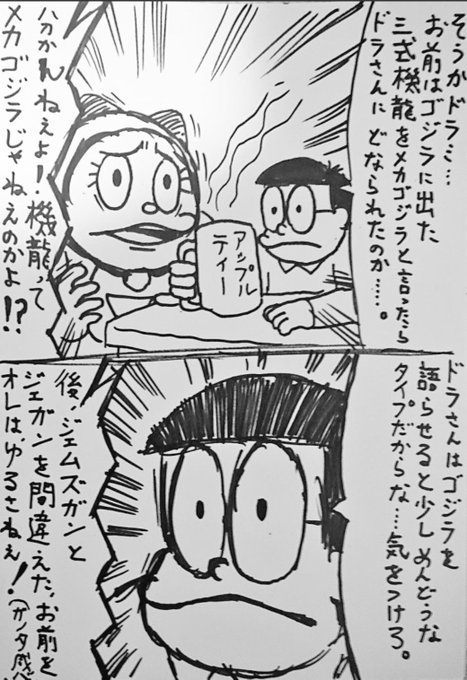 そうかドラミ…
お前はゴジラに出た
三式機龍をメカゴジラと言ったら
ドラさんにどなられたのか……。
アップル
ティー
分かんねぇよ！機龍って
メカゴジラじゃねぇのかよ!?
ドラさんはゴジラを
語らせると少しめんどうな
タイプだからな……気をつけろ。
後、ジェムズガンと
ジェガンを間違えた、お前を
オレは、ゆるさねぇ！(ガノタ感